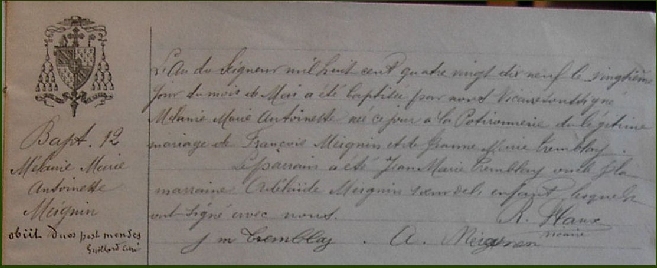 Bapt. 12
Mélanie Marie
Antoinette
Meignin
obiit duos post menses
L'An du Seigneur mil huit cent quatre vingt dix neuf le vingtième
jour du mois de Mai a été baptisée par nous Vicaire soussigné
Mélanie Marie Antoinette née ce jour à la Potironnerie du légitime
mariage de François Meignin et de Jeanne Marie Tremblay.
Le parrain a été Jean Marie Tremblay oncle et la
marraine Adelaide Meignin sœur de l'enfant lesquels
ont signé avec nous.
vicaire
J m Tremblay . A. Meignan